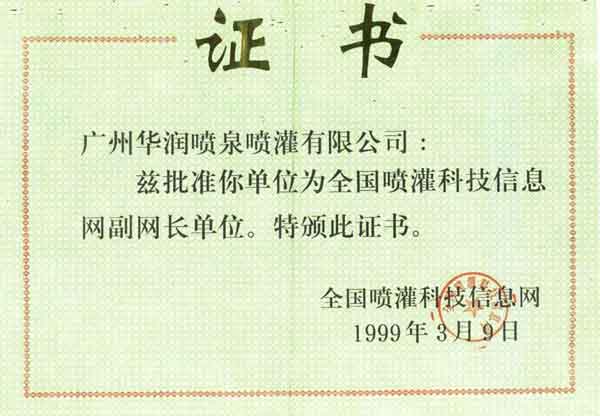 证 书
广州华润喷泉喷灌有限公司：
兹批准你单位为全国喷灌科技信息
网副网长单位。特颁此证书。
全国喷灌科技信息网
1999年3月9日